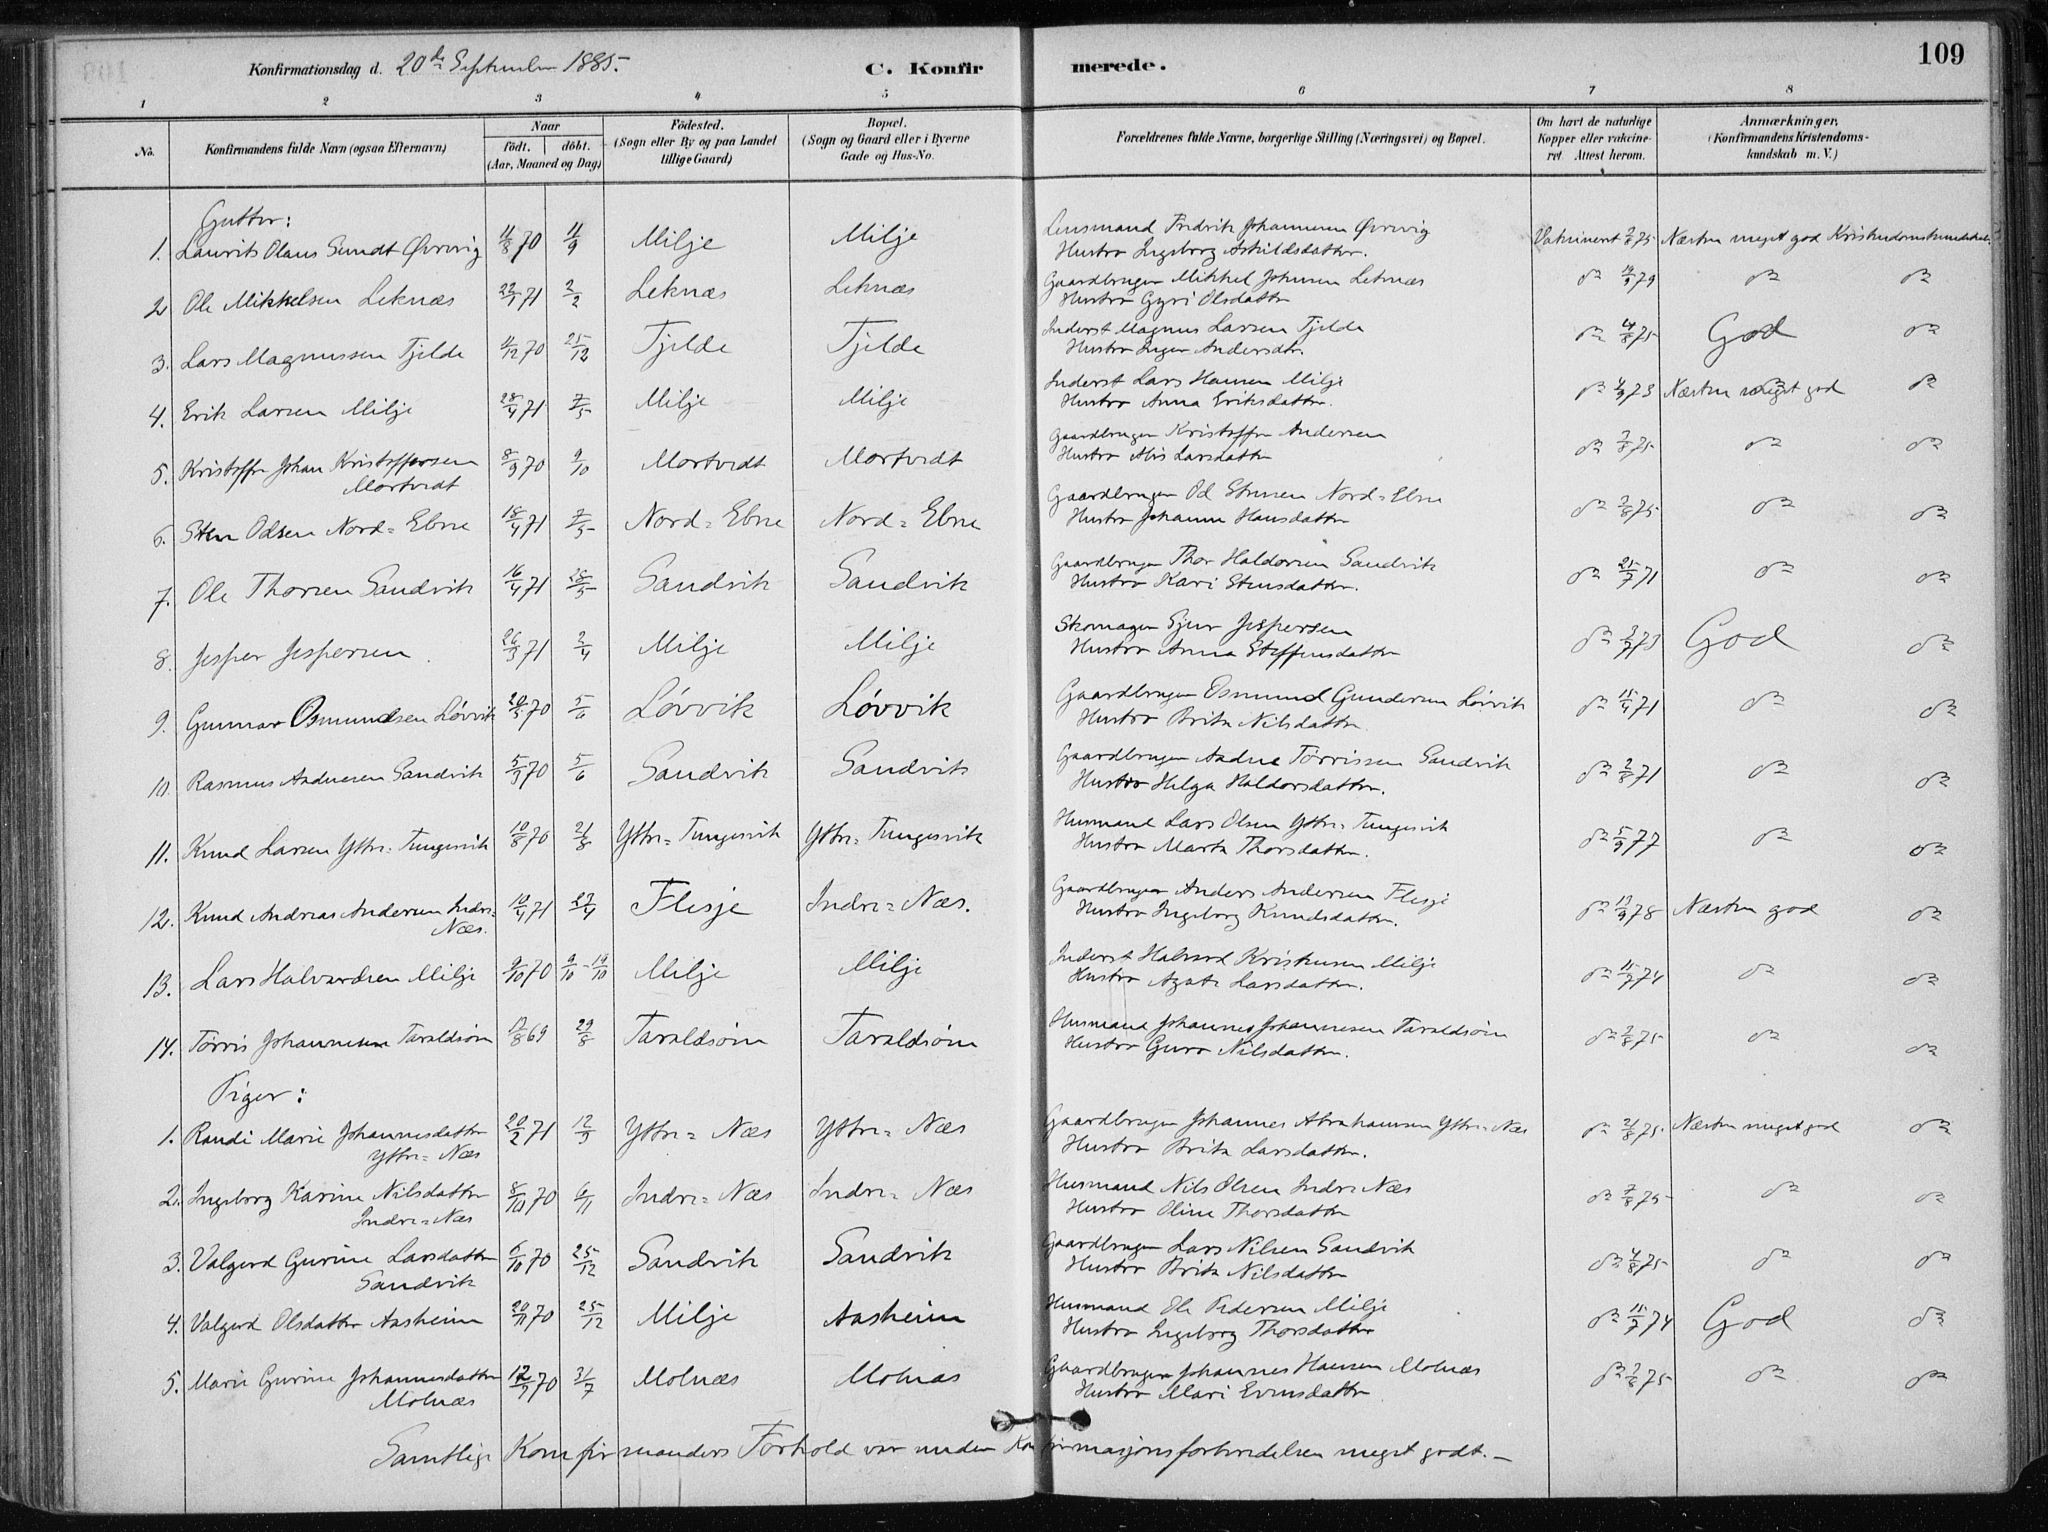 109
Konfirmationsdag d. 20de September 1885.
C. Konfirmerede.
1 2 3 4 5 6 7 8
No.
Konfirmandens fulde Navn (ogsaa Efternavn)
Naar
födt. döbt.
(Aar, Maaned og Dag)
Födested.
(Sogn eller By og paa Landet
tillige Gaard)
Bopæl.
(Sogn og Gaard eller i Byerne
Gade og Hus-No.
Forældrenes fulde Navne, borgerlige Stilling (Næringsvei) og Bopæl.
Om havt de naturlige
Kopper eller vakcine-
ret. Attest herom.
Anmærkninger.
(Konfirmandens Kristendoms-
kundskab m. V.)
Gutter:
1. Laurits Olaus Sundt Øvrevig 11/8 70 11/9 Milje Milje Lensmand Fredrik Johannesen Øvrevig Vakcineret 2/8 75 Næsten meget god Kristendomskundskab.
Hustro Ingeborg Askildsdatter.
2. Ole Mikkelsen Leknæs 22/1 71 2/2 Leknæs Leknæs Gaardbruger Mikkel Johnsen Leknæs do 4/9 79 do do
Hustro Gyri Olsdatter
3. Lars Magnussen Tjelde 4/12 70 25/12 Tjelde Tjelde Inderst Magnus Larsen Tjelde do 4/8 75 God do
Hustro Inger Andersdtr.
4. Erik Larsen Milje 28/4 71 7/5 Milje Milje Inderst Lars Hansen Milje do 4/9 73 Næsten meget god do
Hustro Anna Eriksdatter.
5. Kristoffer Johan Kristoffersen 8/9 70 9/10 Mortvedt Mortvedt Gaardbruger Kristoffer Andersen do 2/8 75 do do
Mortvedt Hustro Alis Larsdatter
6. Sten Odsen Nord=Ebne 18/4 71 7/5 Nord=Ebne Nord=Ebne Gaardbruger Od Stensen Nord=Ebne do 2/8 75 do do
Hustro Johanne Hansdatter
7. Ole Thorsen Sandvik 16/4 71 28/5 Sandvik Sandvik Gaardbruger Thor Haldorsen Sandvik do 25/7 71 do do
Hustro Kari Stensdatter.
8. Jesper Jespersen 26/3 71 2/4 Milje Milje Skomager Sjur Jespersen do 3/7 73 God do
Hustro Anna Steffensdatter
9. Gunnar Osmundsen Løvvik 20/5 70 5/6 Løvvik Løvvik Gaardbruger Osmund Gundersen Løvvik do 15/4 71 do do
Hustro Brita Nilsdatter.
10. Rasmus Andnesen Sandvik 5/5 70 5/6 Sandvik Sandvik Gaardbruger Andne Tørrissen Sandvik do 2/8 71 do do
Hustro Helga Haldorsdatter.
11. Knud Larsen Ytre=Tungesvik 10/8 70 21/8 Ytre=Tungesvik Ytre=Tungesvik Husmand Lars Olsen Ytre=Tungesvik do 5/9 77 do do
Hustro Marta Thorsdatter.
12. Knud Andreas Andersen Indre= 10/4 71 27/4 Flesje Indre=Næs. Gaardbruger Anders Andersen Flesje do 13/9 78 Næsten god do
Næs. Hustro Ingeborg Knudsdatter.
13. Lars Halvardsen Milje 9/10 70 9/10 - 19/10 Milje Milje Inderst Halvard Kristensen Milje do 15/7 74 do do
Hustro Agate Larsdatter.
14. Tørris Johannesen Taraldsøin 17/8 69 29/8 Taraldsøin Taraldsøin Husmand Johannes Johannesen Taraldsøin do 2/8 75 do do
Hustro Guro Nilsdatter.
Piger:
1. Randi Marie Johannesdatter 20/2 71 12/3 Ytre=Næs Ytre=Næs Gaardbruger Johannes Abrahamsen Ytre=Næs do 21/8 75. Næsten meget god do
Ytre=Næs Hustro Brita Larsdatter.
2. Ingeborg Karine Nilsdatter 8/10 70 6/11 Indre=Næs Indre=Næs Husmand Nils Olsen Indre=Næs do 7/8 75 do do
Indre=Næs Hustro Oline Thorsdatter
3. Valgerd Gurine Larsdatter 6/10 70 25/12 Sandvik Sandvik Gaardbruger Lars Nilsen Sandvik do 4/8 75 do do
Sandvik Hustro Brita Nilsdatter
4. Valgerd Olsdatter Aasheim 20/11 70 25/12 Milje Aasheim Husmand Ole Pedersen Milje do 15/7 74 God do
Hustro Ingeborg Thorsdatter
5. Marie Gurine Johannesdatter 12/7 70 31/7 Molnæs Molnæs Gaardbruger Johannes Hansen Molnæs do 2/8 75 do do
Molnæs Hustro Mari Evensdatter
Samtlige Konfirmanders Forhold var under Konfirmasjonsforberedelsen meget godt. —